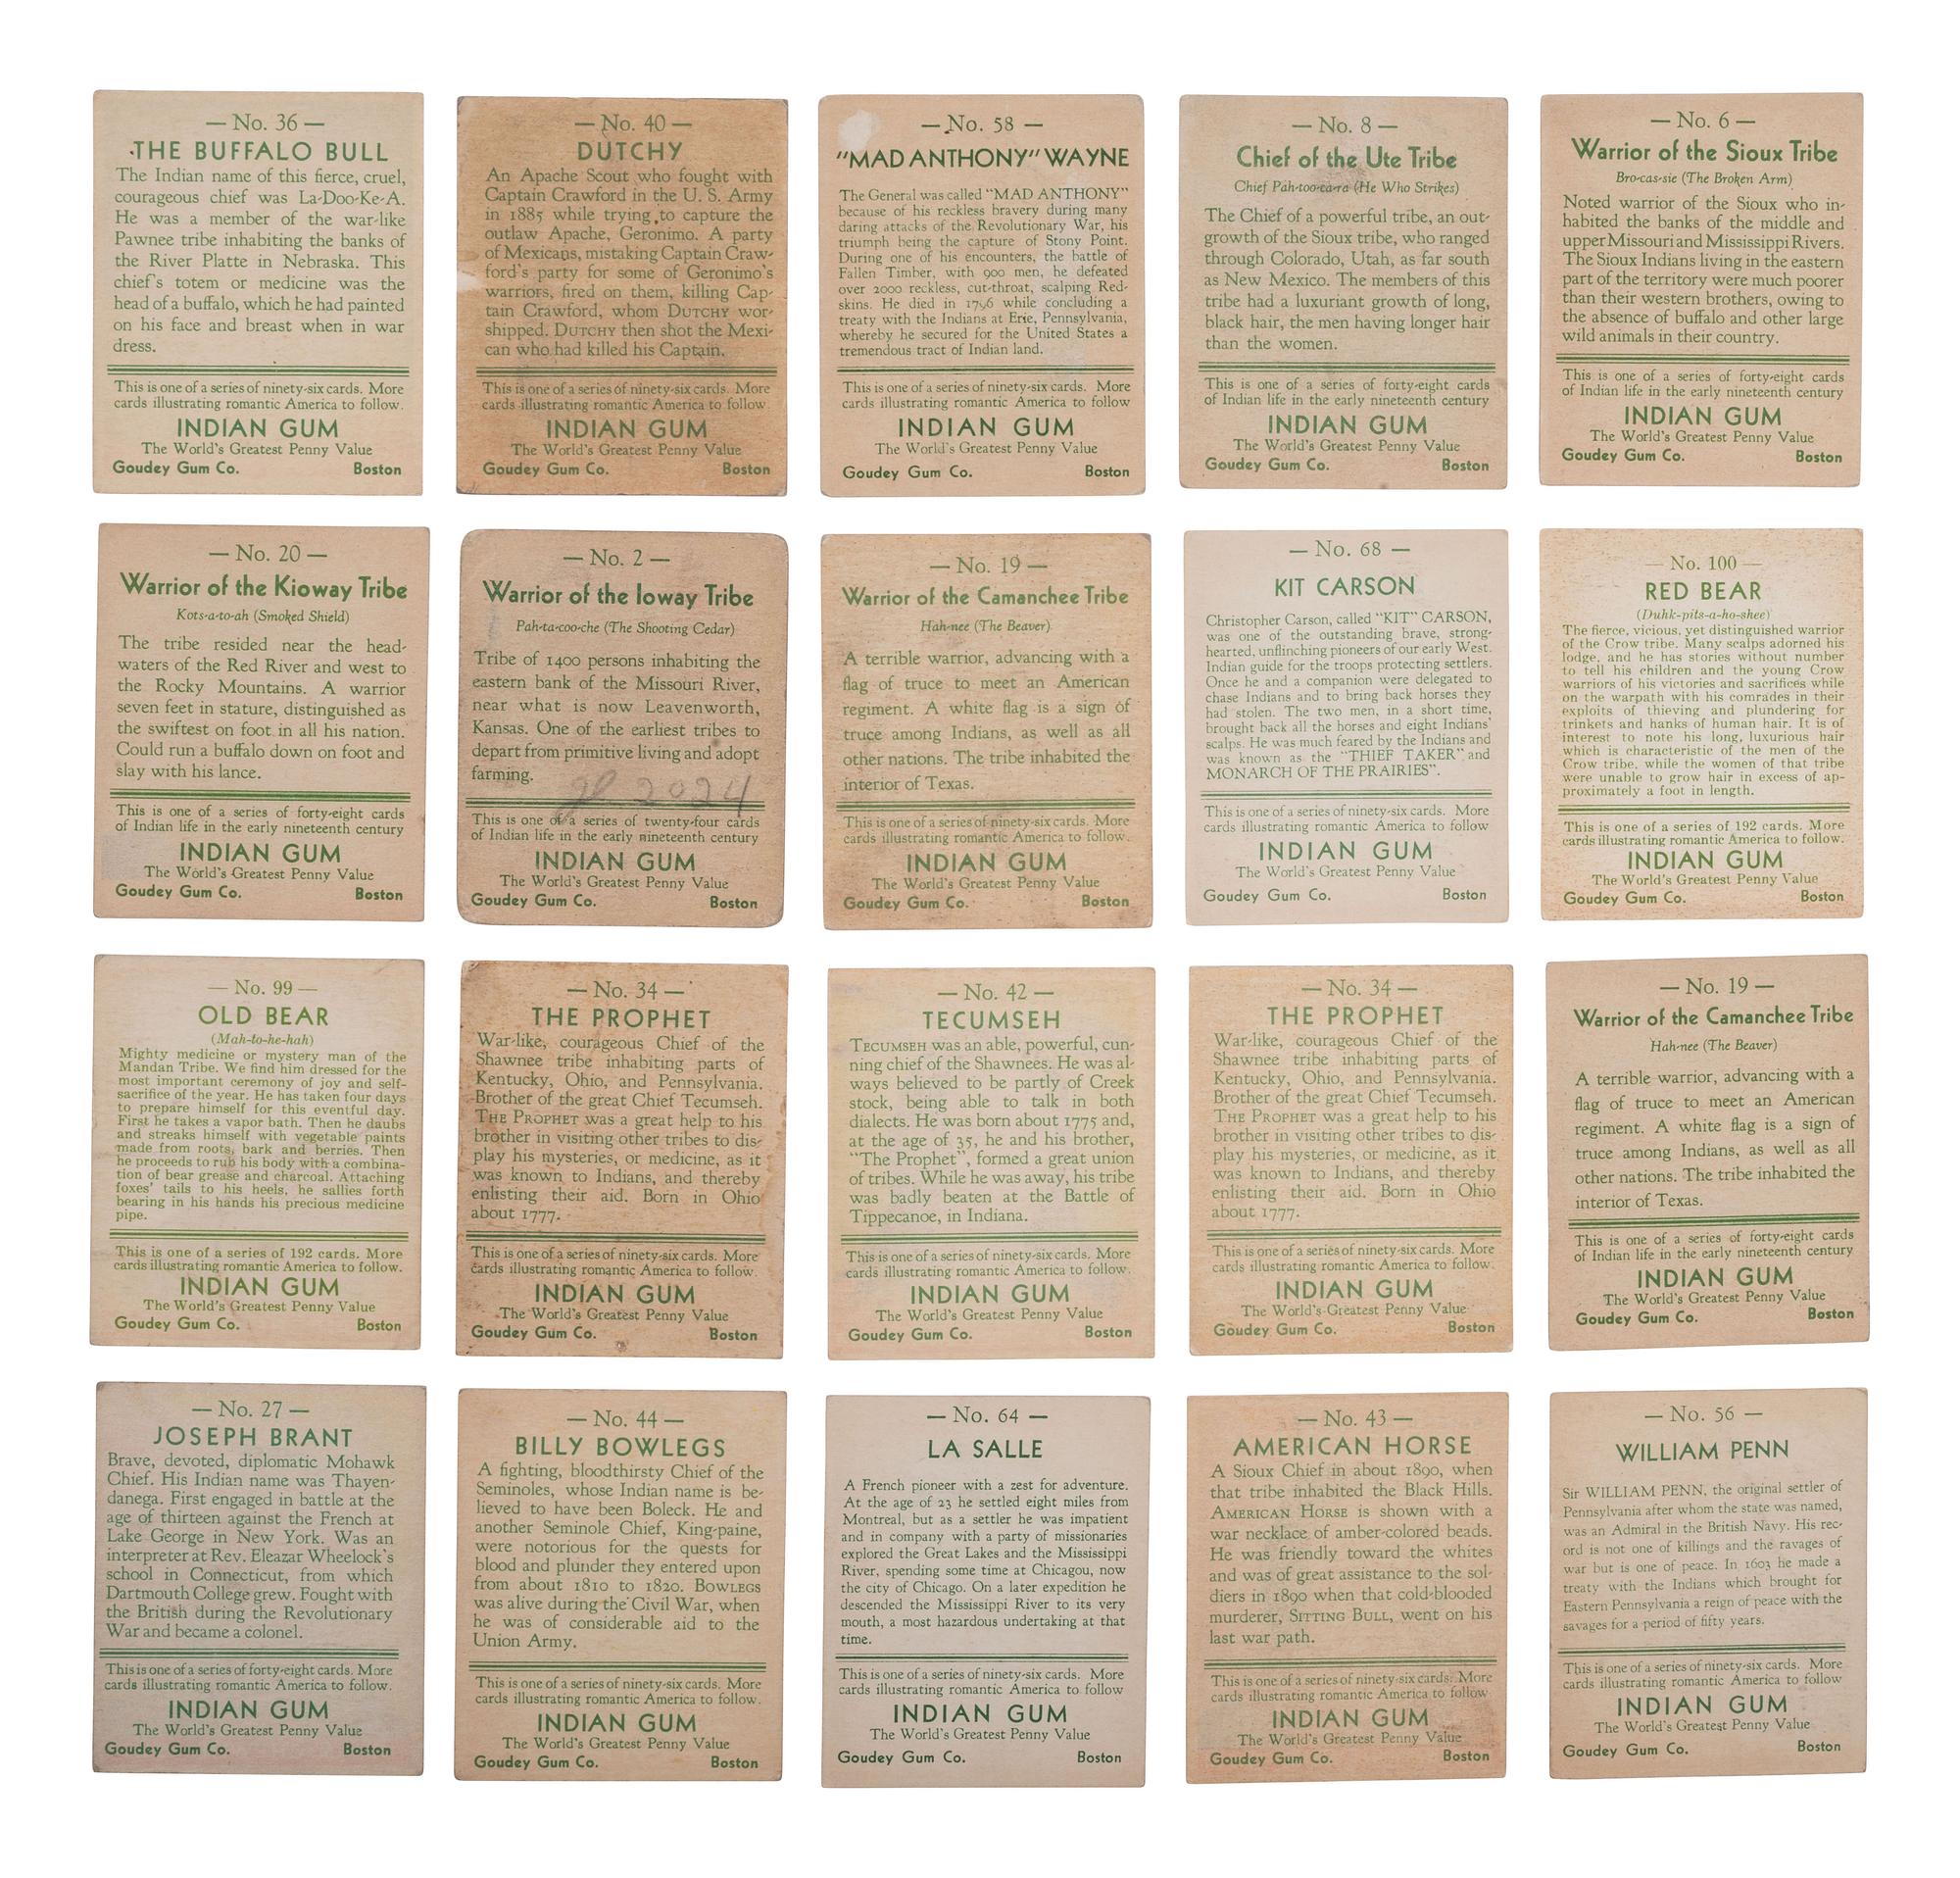 — No. 36 —
THE BUFFALO BULL
The Indian name of this fierce, cruel,
courageous chief was La-Doo-Ke-A.
He was a member of the war-like
Pawnee tribe inhabiting the banks of
the River Platte in Nebraska. This
chief's totem or medicine was the
head of a buffalo, which he had painted
on his face and breast when in war
dress.
This is one of a series of ninety-six cards. More
cards illustrating romantic America to follow.
INDIAN GUM
The World's Greatest Penny Value
Goudey Gum Co. Boston
— No. 40 —
DUTCHY
An Apache Scout who fought with
Captain Crawford in the U. S. Army
in 1885 while trying to capture the
outlaw Apache, Geronimo. A party
of Mexicans, mistaking Captain Craw-
ford's party for some of Geronimo's
warriors, fired on them, killing Cap-
tain Crawford, whom DUTCHY wor-
shipped. DUTCHY then shot the Mexi-
can who had killed his Captain.
This is one of a series of ninety-six cards. More
cards illustrating romantic America to follow.
INDIAN GUM
The World's Greatest Penny Value
Goudey Gum Co. Boston
— No. 58 —
"MAD ANTHONY" WAYNE
The General was called "MAD ANTHONY"
because of his reckless bravery during many
daring attacks of the Revolutionary War, his
triumph being the capture of Stony Point.
During one of his encounters, the battle of
Fallen Timber, with 900 men, he defeated
over 2000 reckless, cut-throat, scalping Red-
skins. He died in 1796 while concluding a
treaty with the Indians at Erie, Pennsylvania,
whereby he secured for the United States a
tremendous tract of Indian land.
This is one of a series of ninety-six cards. More
cards illustrating romantic America to follow
INDIAN GUM
The World's Greatest Penny Value
Goudey Gum Co. Boston
— No. 8 —
Chief of the Ute Tribe
Chief Pah-too-ca-ra (He Who Strikes)
The Chief of a powerful tribe, an out-
growth of the Sioux tribe, who ranged
through Colorado, Utah, as far south
as New Mexico. The members of this
tribe had a luxuriant growth of long,
black hair, the men having longer hair
than the women.
This is one of a series of forty-eight cards
of Indian life in the early nineteenth century
INDIAN GUM
The World's Greatest Penny Value
Goudey Gum Co. Boston
— No. 6 —
Warrior of the Sioux Tribe
Bro-cas-sie (The Broken Arm)
Noted warrior of the Sioux who in-
habited the banks of the middle and
upper Missouri and Mississippi Rivers.
The Sioux Indians living in the eastern
part of the territory were much poorer
than their western brothers, owing to
the absence of buffalo and other large
wild animals in their country.
This is one of a series of forty-eight cards
of Indian life in the early nineteenth century
INDIAN GUM
The World's Greatest Penny Value
Goudey Gum Co. Boston
— No. 20 —
Warrior of the Kioway Tribe
Kots-a-to-ah (Smoked Shield)
The tribe resided near the head-
waters of the Red River and west to
the Rocky Mountains. A warrior
seven feet in stature, distinguished as
the swiftest on foot in all his nation.
Could run a buffalo down on foot and
slay with his lance.
This is one of a series of forty-eight cards
of Indian life in the early nineteenth century
INDIAN GUM
The World's Greatest Penny Value
Goudey Gum Co. Boston
— No. 2 —
Warrior of the Ioway Tribe
Pah-ta-coo-che (The Shooting Cedar)
Tribe of 1400 persons inhabiting the
eastern bank of the Missouri River,
near what is now Leavenworth,
Kansas. One of the earliest tribes to
depart from primitive living and adopt
farming.
2024
This is one of a series of twenty-four cards
of Indian life in the early nineteenth century
INDIAN GUM
The World's Greatest Penny Value
Goudey Gum Co. Boston
— No. 19 —
Warrior of the Camanchee Tribe
Hah-nee (The Beaver)
A terrible warrior, advancing with a
flag of truce to meet an American
regiment. A white flag is a sign of
truce among Indians, as well as all
other nations. The tribe inhabited the
interior of Texas.
This is one of a series of ninety-six cards. More
cards illustrating romantic America to follow.
INDIAN GUM
The World's Greatest Penny Value
Goudey Gum Co. Boston
— No. 68 —
KIT CARSON
Christopher Carson, called "KIT" CARSON,
was one of the outstanding brave, strong-
hearted, unflinching pioneers of our early West.
Indian guide for the troops protecting settlers.
Once he and a companion were delegated to
chase Indians and to bring back horses they
had stolen. The two men, in a short time,
brought back all the horses and eight Indians'
scalps. He was much feared by the Indians and
was known as the "THIEF TAKER" and
MONARCH OF THE PRAIRIES".
This is one of a series of ninety-six cards. More
cards illustrating romantic America to follow
INDIAN GUM
The World's Greatest Penny Value
Goudey Gum Co. Boston
— No. 100 —
RED BEAR
(Duhk-pits-a-ho-shee)
The fierce, vicious, yet distinguished warrior
of the Crow tribe. Many scalps adorned his
lodge, and he has stories without number
to tell his children and the young Crow
warriors of his victories and sacrifices while
on the warpath with his comrades in their
exploits of thieving and plundering for
trinkets and hanks of human hair. It is of
interest to note his long, luxurious hair
which is characteristic of the men of the
Crow tribe, while the women of that tribe
were unable to grow hair in excess of ap-
proximately a foot in length.
This is one of a series of 192 cards. More
cards illustrating romantic America to follow.
INDIAN GUM
The World's Greatest Penny Value
Goudey Gum Co. Boston
— No. 99 —
OLD BEAR
(Mah-to-he-hah)
Mighty medicine or mystery man of the
Mandan Tribe. We find him dressed for the
most important ceremony of joy and self-
sacrifice of the year. He has taken four days
to prepare himself for this eventful day.
First he takes a vapor bath. Then he daubs
and streaks himself with vegetable paints
made from roots, bark and berries. Then
he proceeds to rub his body with a combina-
tion of bear grease and charcoal. Attaching
foxes' tails to his heels, he sallies forth
bearing in his hands his precious medicine
pipe.
This is one of a series of 192 cards. More
cards illustrating romantic America to follow.
INDIAN GUM
The World's Greatest Penny Value
Goudey Gum Co. Boston
— No. 34 —
THE PROPHET
War-like, courageous Chief of the
Shawnee tribe inhabiting parts of
Kentucky, Ohio, and Pennsylvania.
Brother of the great Chief Tecumseh.
THE PROPHET was a great help to his
brother in visiting other tribes to dis-
play his mysteries, or medicine, as it
was known to Indians, and thereby
enlisting their aid. Born in Ohio
about 1777.
This is one of a series of ninety-six cards. More
cards illustrating romantic America to follow.
INDIAN GUM
The World's Greatest Penny Value
Goudey Gum Co. Boston
— No. 42 —
TECUMSEH
TECUMSEH was an able, powerful, cun-
ning chief of the Shawnees. He was al-
ways believed to be partly of Creek
stock, being able to talk in both
dialects. He was born about 1775 and,
at the age of 35, he and his brother,
"The Prophet", formed a great union
of tribes. While he was away, his tribe
was badly beaten at the Battle of
Tippecanoe, in Indiana.
This is one of a series of ninety-six cards. More
cards illustrating romantic America to follow.
INDIAN GUM
The World's Greatest Penny Value
Goudey Gum Co. Boston
— No. 34 —
THE PROPHET
War-like, courageous Chief of the
Shawnee tribe inhabiting parts of
Kentucky, Ohio, and Pennsylvania.
Brother of the great Chief Tecumseh.
THE PROPHET was a great help to his
brother in visiting other tribes to dis-
play his mysteries, or medicine, as it
was known to Indians, and thereby
enlisting their aid. Born in Ohio
about 1777.
This is one of a series of ninety-six cards. More
cards illustrating romantic America to follow.
INDIAN GUM
The World's Greatest Penny Value
Goudey Gum Co. Boston
— No. 19 —
Warrior of the Camanchee Tribe
Hah-nee (The Beaver)
A terrible warrior, advancing with a
flag of truce to meet an American
regiment. A white flag is a sign of
truce among Indians, as well as all
other nations. The tribe inhabited the
interior of Texas.
This is one of a series of forty-eight cards
of Indian life in the early nineteenth century
INDIAN GUM
The World's Greatest Penny Value
Goudey Gum Co. Boston
— No. 27 —
JOSEPH BRANT
Brave, devoted, diplomatic Mohawk
Chief. His Indian name was Thayen-
danega. First engaged in battle at the
age of thirteen against the French at
Lake George in New York. Was an
interpreter at Rev. Eleazar Wheelock's
school in Connecticut, from which
Dartmouth College grew. Fought with
the British during the Revolutionary
War and became a colonel.
This is one of a series of forty-eight cards. More
cards illustrating romantic America to follow.
INDIAN GUM
The World's Greatest Penny Value
Goudey Gum Co. Boston
— No. 44 —
BILLY BOWLEGS
A fighting, bloodthirsty Chief of the
Seminoles, whose Indian name is be-
lieved to have been Boleck. He and
another Seminole Chief, King-paine,
were notorious for the quests for
blood and plunder they entered upon
from about 1810 to 1820. BOWLEGS
was alive during the Civil War, when
he was of considerable aid to the
Union Army.
This is one of a series of ninety-six cards. More
cards illustrating romantic America to follow.
INDIAN GUM
The World's Greatest Penny Value
Goudey Gum Co. Boston
— No. 64 —
LA SALLE
A French pioneer with a zest for adventure.
At the age of 23 he settled eight miles from
Montreal, but as a settler he was impatient
and in company with a party of missionaries
explored the Great Lakes and the Mississippi
River, spending some time at Chicagou, now
the city of Chicago. On a later expedition he
descended the Mississippi River to its very
mouth, a most hazardous undertaking at that
time.
This is one of a series of ninety-six cards. More
cards illustrating romantic America to follow
INDIAN GUM
The World's Greatest Penny Value
Goudey Gum Co. Boston
— No. 43 —
AMERICAN HORSE
A Sioux Chief in about 1890, when
that tribe inhabited the Black Hills.
AMERICAN HORSE is shown with a
war necklace of amber-colored beads.
He was friendly toward the whites
and was of great assistance to the sol-
diers in 1890 when that cold-blooded
murderer, SITTING BULL, went on his
last war path.
This is one of a series of ninety-six cards. More
cards illustrating romantic America to follow
INDIAN GUM
The World's Greatest Penny Value
Goudey Gum Co. Boston
— No. 56 —
WILLIAM PENN
Sir WILLIAM PENN, the original settler of
Pennsylvania after whom the state was named,
was an Admiral in the British Navy. His rec-
ord is not one of killings and the ravages of
war but is one of peace. In 1603 he made a
treaty with the Indians which brought for
Eastern Pennsylvania a reign of peace with the
savages for a period of fifty years.
This is one of a series of ninety-six cards. More
cards illustrating romantic America to follow
INDIAN GUM
The World's Greatest Penny Value
Goudey Gum Co. Boston